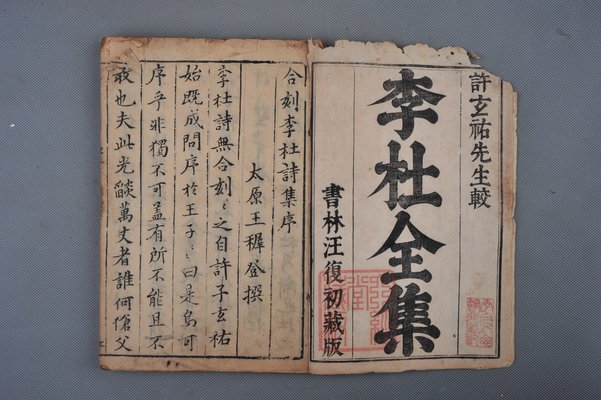 許玄祐先生較
李杜全集
書林汪復初藏版
合刻李杜詩集序
太原王穉登撰
李杜詩無合刻〻之自許子玄祐
始既成問序於王子〻曰是烏可
序乎非獨不可盖有所不能且不
敢也夫此光燄萬丈者誰何傖父